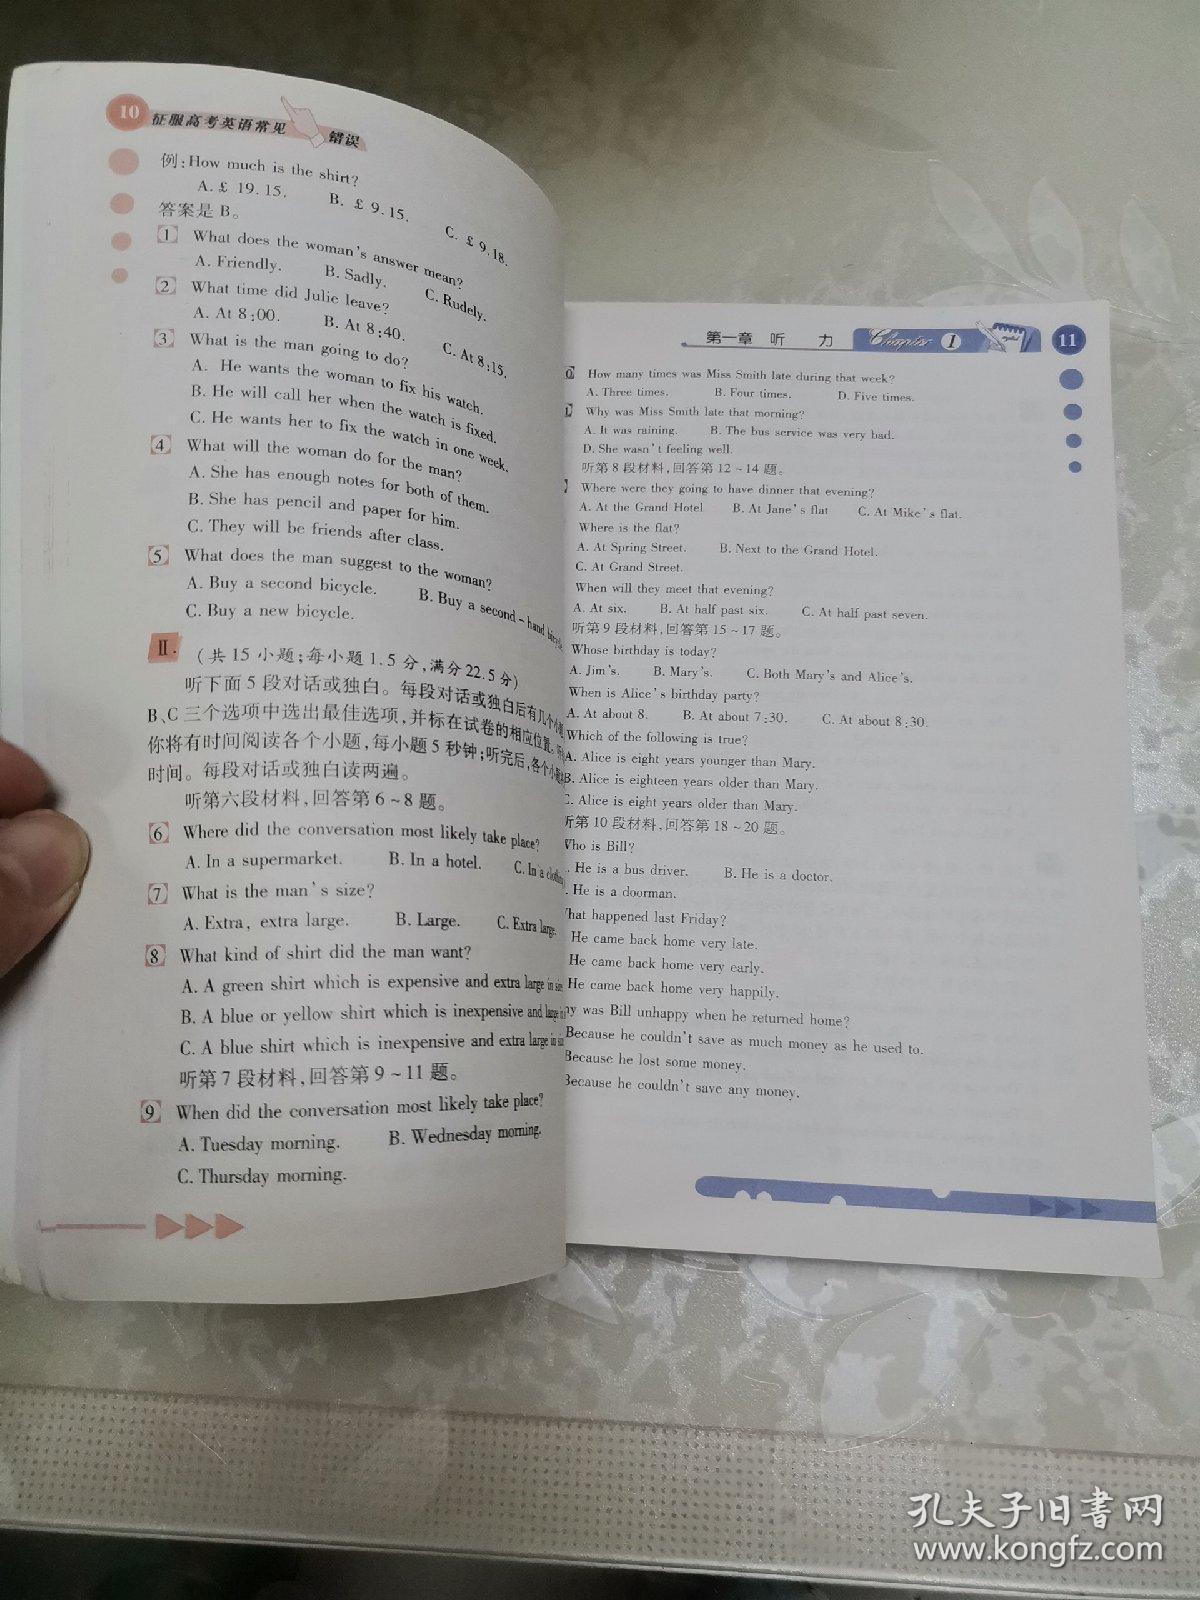 10
征服高考英语常见
错误
例:How much is the shirt?
A. £ 19. 15. B. £ 9. 15. C. £ 9. 18.
答案是 B。
1 What does the woman's answer mean?
A. Friendly. B. Sadly. C. Rudely.
2 What time did Julie leave?
A. At 8:00. B. At 8:40. C. At 8:15.
3 What is the man going to do?
A. He wants the woman to fix his watch.
B. He will call her when the watch is fixed.
C. He wants her to fix the watch in one week.
4 What will the woman do for the man?
A. She has enough notes for both of them.
B. She has pencil and paper for him.
C. They will be friends after class.
5 What does the man suggest to the woman?
A. Buy a second bicycle. B. Buy a second-hand
C. Buy a new bicycle.
Ⅱ. (共 15 小题;每小题 1.5 分,满分 22.5 分)
听下面 5 段对话或独白。每段对话或独白后有几个
B、C 三个选项中选出最佳选项,并标在试卷的相应位置。
你将有时间阅读各个小题,每小题 5 秒钟;听完后,各个
时间。每段对话或独白读两遍。
听第六段材料,回答第 6～8 题。
6 Where did the conversation most likely take place?
A. In a supermarket. B. In a hotel. C. In a
7 What is the man's size?
A. Extra, extra large. B. Large. C. Extra large.
8 What kind of shirt did the man want?
A. A green shirt which is expensive and extra large in
B. A blue or yellow shirt which is inexpensive and large
C. A blue shirt which is inexpensive and extra large in
听第 7 段材料,回答第 9～11 题。
9 When did the conversation most likely take place?
A. Tuesday morning. B. Wednesday morning.
C. Thursday morning.
第一章 听 力 Chapter 1 11
How many times was Miss Smith late during that week?
A. Three times. B. Four times. D. Five times.
Why was Miss Smith late that morning?
A. It was raining. B. The bus service was very bad.
D. She wasn't feeling well.
听第 8 段材料,回答第 12～14 题。
Where were they going to have dinner that evening?
A. At the Grand Hotel B. At Jane's flat C. At Mike's flat.
Where is the flat?
A. At Spring Street. B. Next to the Grand Hotel.
C. At Grand Street.
When will they meet that evening?
A. At six. B. At half past six. C. At half past seven.
听第 9 段材料,回答第 15～17 题。
Whose birthday is today?
A. Jim's. B. Mary's. C. Both Mary's and Alice's.
When is Alice's birthday party?
A. At about 8. B. At about 7:30. C. At about 8:30.
Which of the following is true?
A. Alice is eight years younger than Mary.
B. Alice is eighteen years older than Mary.
C. Alice is eight years older than Mary.
听第 10 段材料,回答第 18～20 题。
Who is Bill?
. He is a bus driver. B. He is a doctor.
. He is a doorman.
What happened last Friday?
He came back home very late.
He came back home very early.
He came back home very happily.
was Bill unhappy when he returned home?
Because he couldn't save as much money as he used to.
Because he lost some money.
Because he couldn't save any money.
孔夫子旧书网
www.kongfz.com